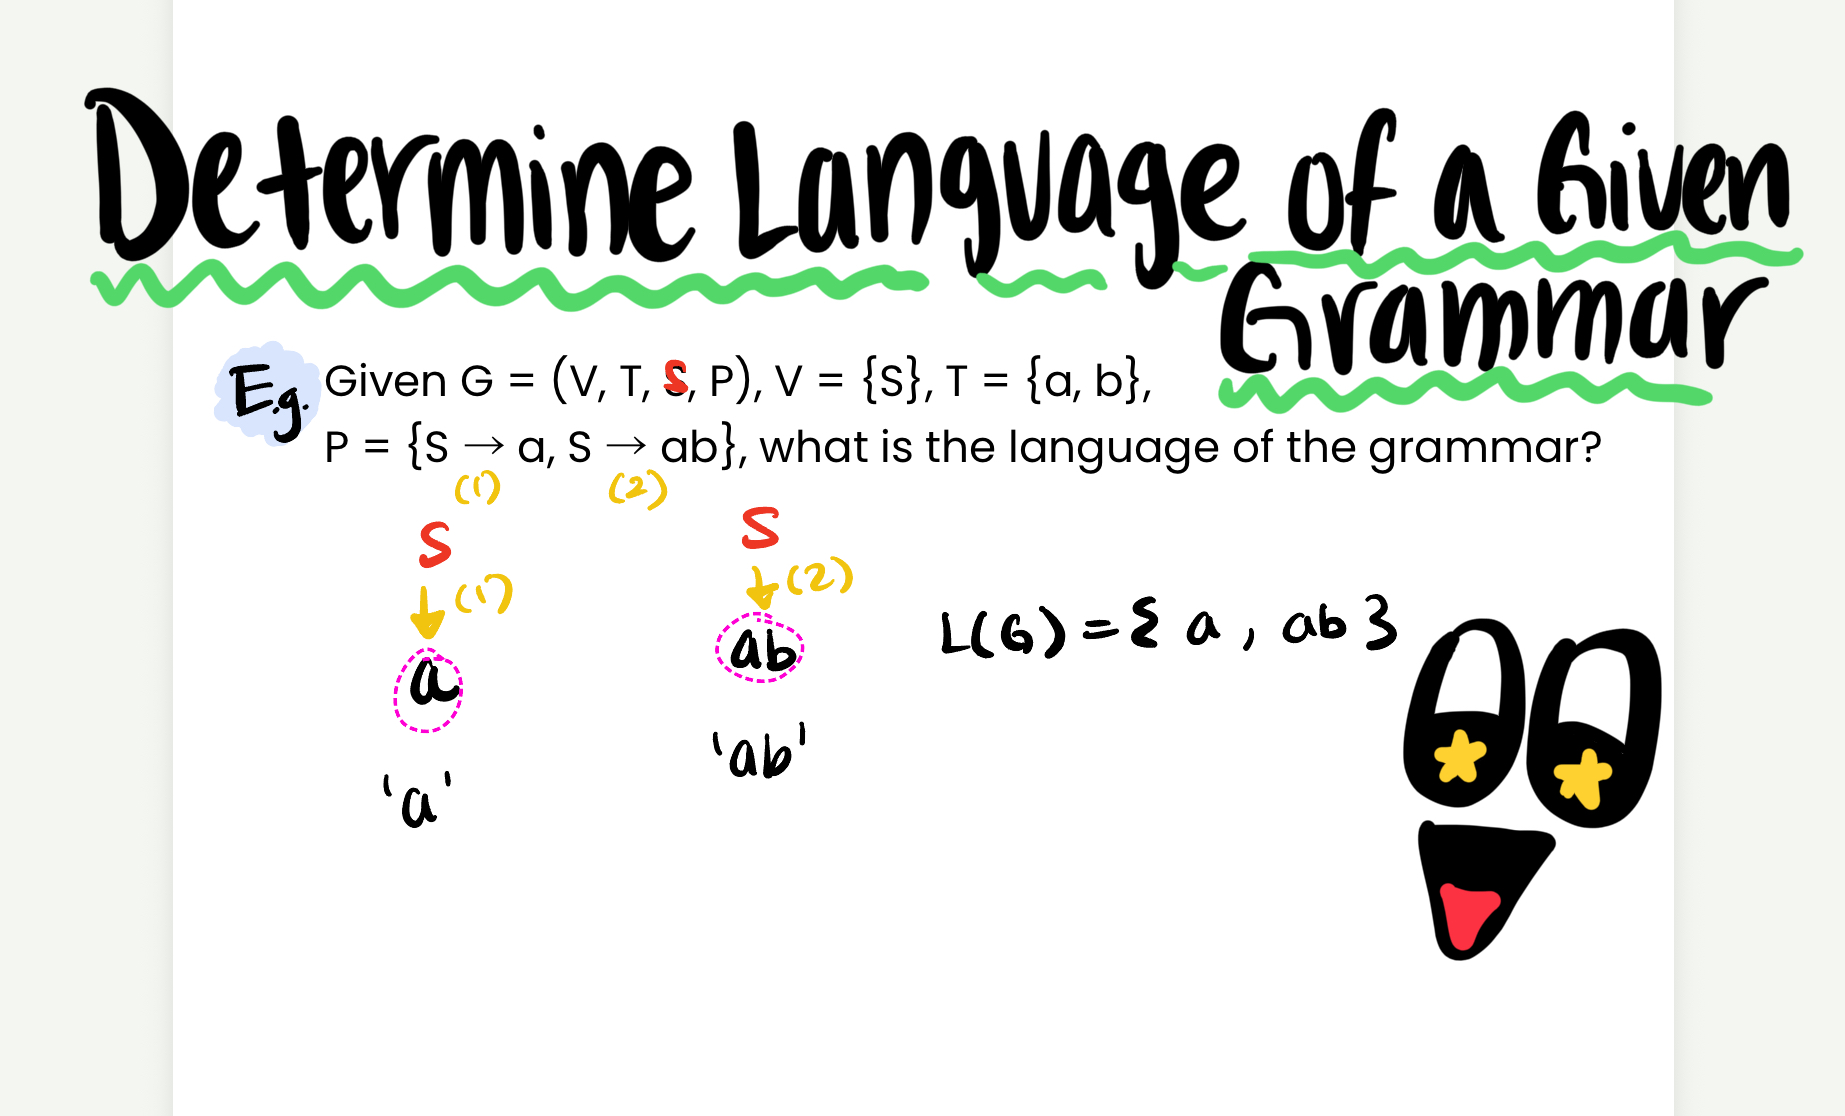 Determine Language of a Given
Grammar
E.g. Given G = (V, T, S, P), V = {S}, T = {a, b},
P = {S → a, S → ab}, what is the language of the grammar?
(1) (2)
S S
↓ (1) ↓ (2)
a ab
L(G) = { a , ab }
'a' 'ab'